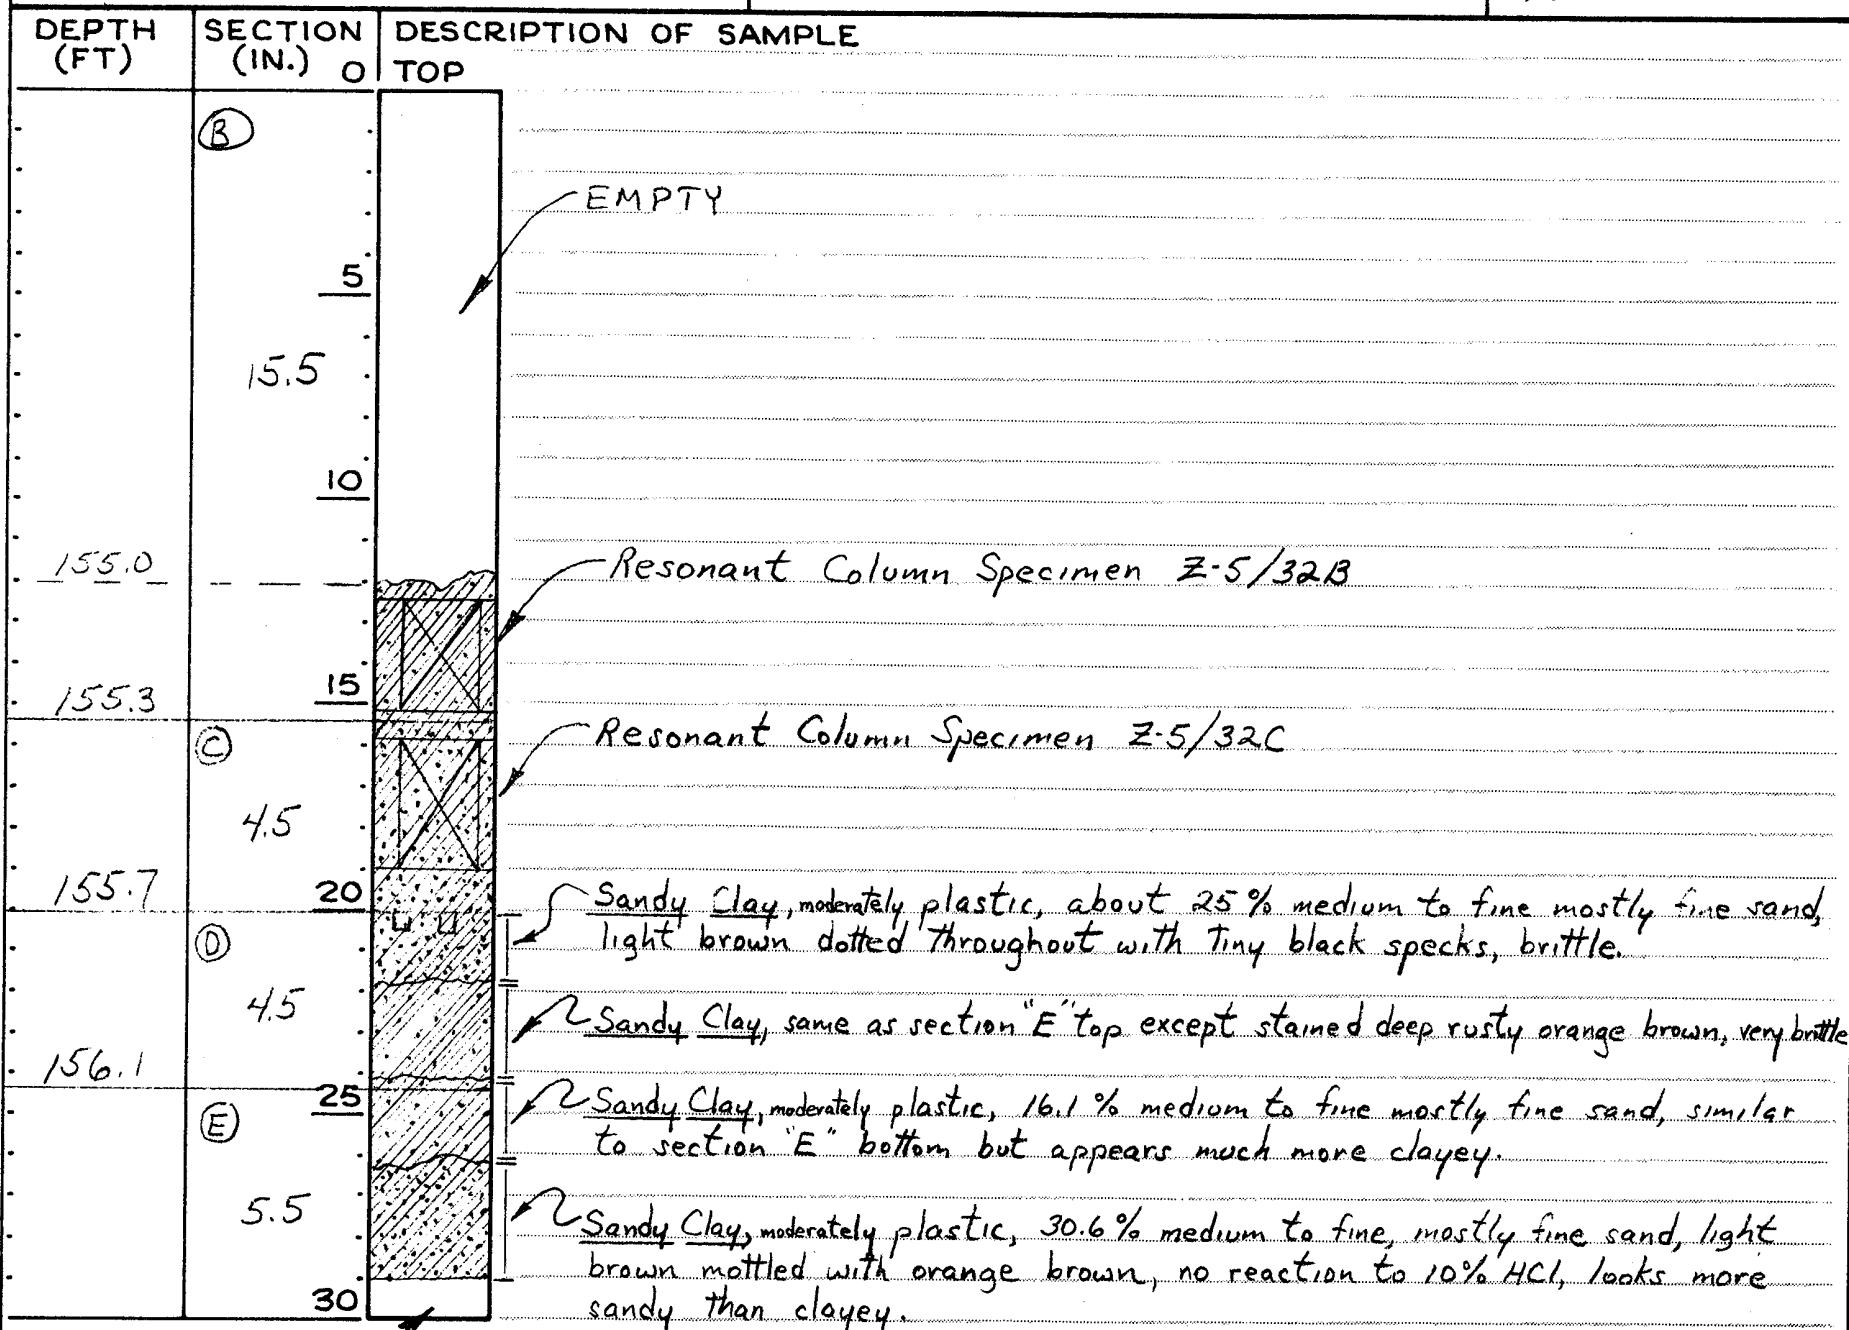 DEPTH (FT)
SECTION (IN.) 0
DESCRIPTION OF SAMPLE
TOP
B
EMPTY
5
15.5
10
155.0
Resonant Column Specimen Z-5/32B
15
155.3
C
Resonant Column Specimen Z-5/32C
4.5
155.7
20
Sandy Clay, moderately plastic, about 25% medium to fine mostly fine sand,
light brown dotted throughout with Tiny black specks, brittle.
D
4.5
Sandy Clay, same as section "E" top except stained deep rusty orange brown, very brittle
156.1
25
Sandy Clay, moderately plastic, 16.1% medium to fine mostly fine sand, similar
to section "E" bottom but appears much more clayey.
E
5.5
Sandy Clay, moderately plastic, 30.6% medium to fine, mostly fine sand, light
brown mottled with orange brown, no reaction to 10% HCl, looks more
sandy than clayey.
30